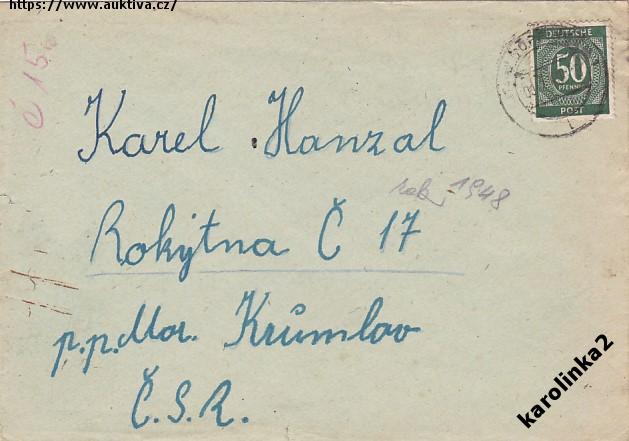 https://www.auktiva.cz/
č 15.
DEUTSCHE
50
PFENNIG
POST
Karel Hanzal
rok 1948
Rokytna Č 17
p.p. Mor. Krůmlov
Č.S.R.
karolinka2